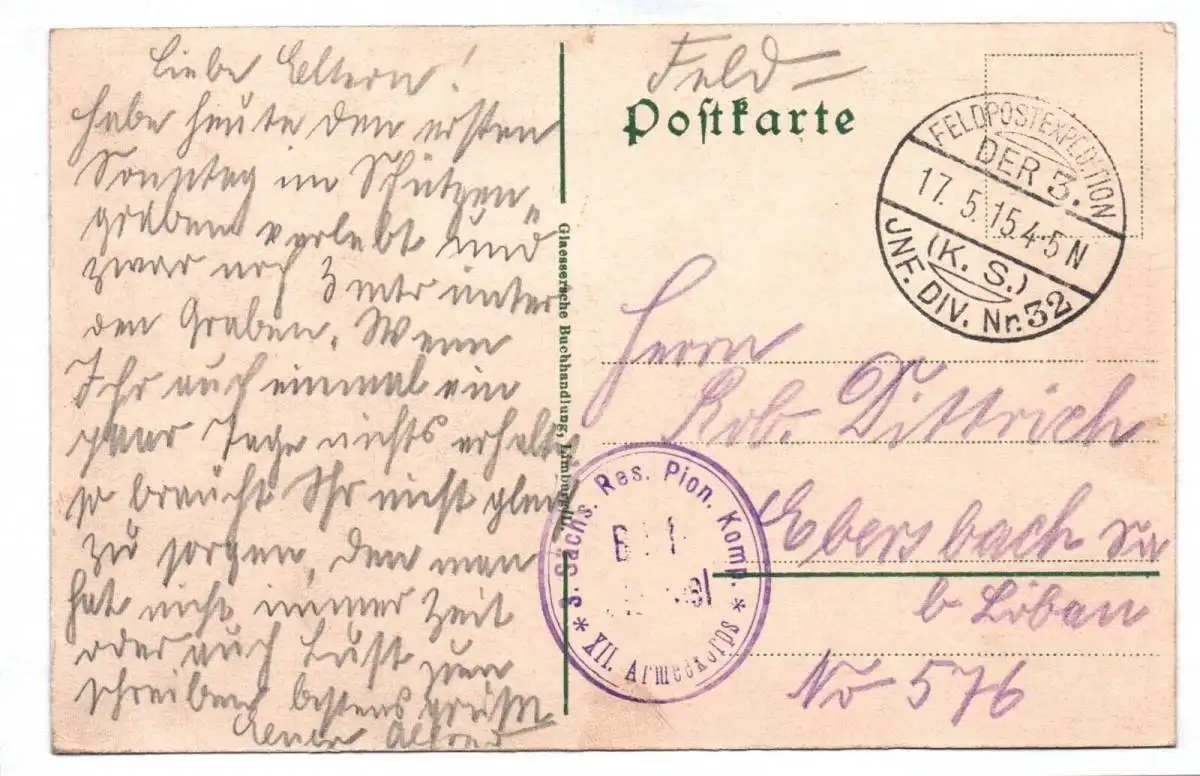 Liebe Eltern!
habe heute den ersten
Sonntag im Schützen„
graben verlebt und
zwar noch 3 mtr unter
den Graben. Wenn
Ihr auch einmal ein
paar Tage nichts erhaltet
so braucht Ihr nicht gleich
zu sorgen, den man
hat nicht immer Zeit
oder auch Lust zum
schreiben bestens grüßt
Euer Alfred
Glaessersche Buchhandlung, Limburg
Feld=
Postkarte
FELDPOSTEXPEDITION
DER 3.
17. 5. 15. 4-5 N
(K. S.)
JNF. DIV. Nr. 32
Herrn
Rob. Dittrich
Ebersbach Sa
b Löbau
No 576
* 3. Sächs. Res. Pion. Komp. *
XII. Armeekorps